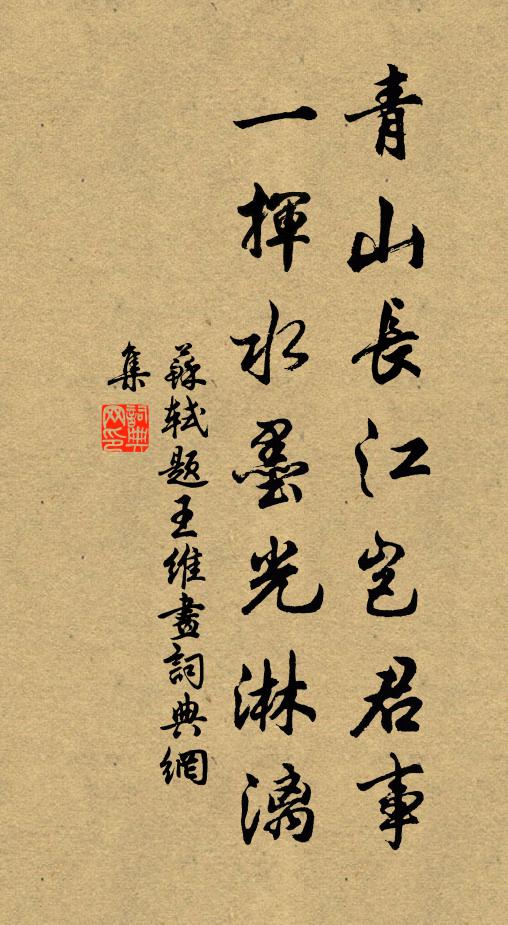 青山長江豈君事
一揮水墨光淋漓
蘇軾題王維畫詞典網
集
詞典网印